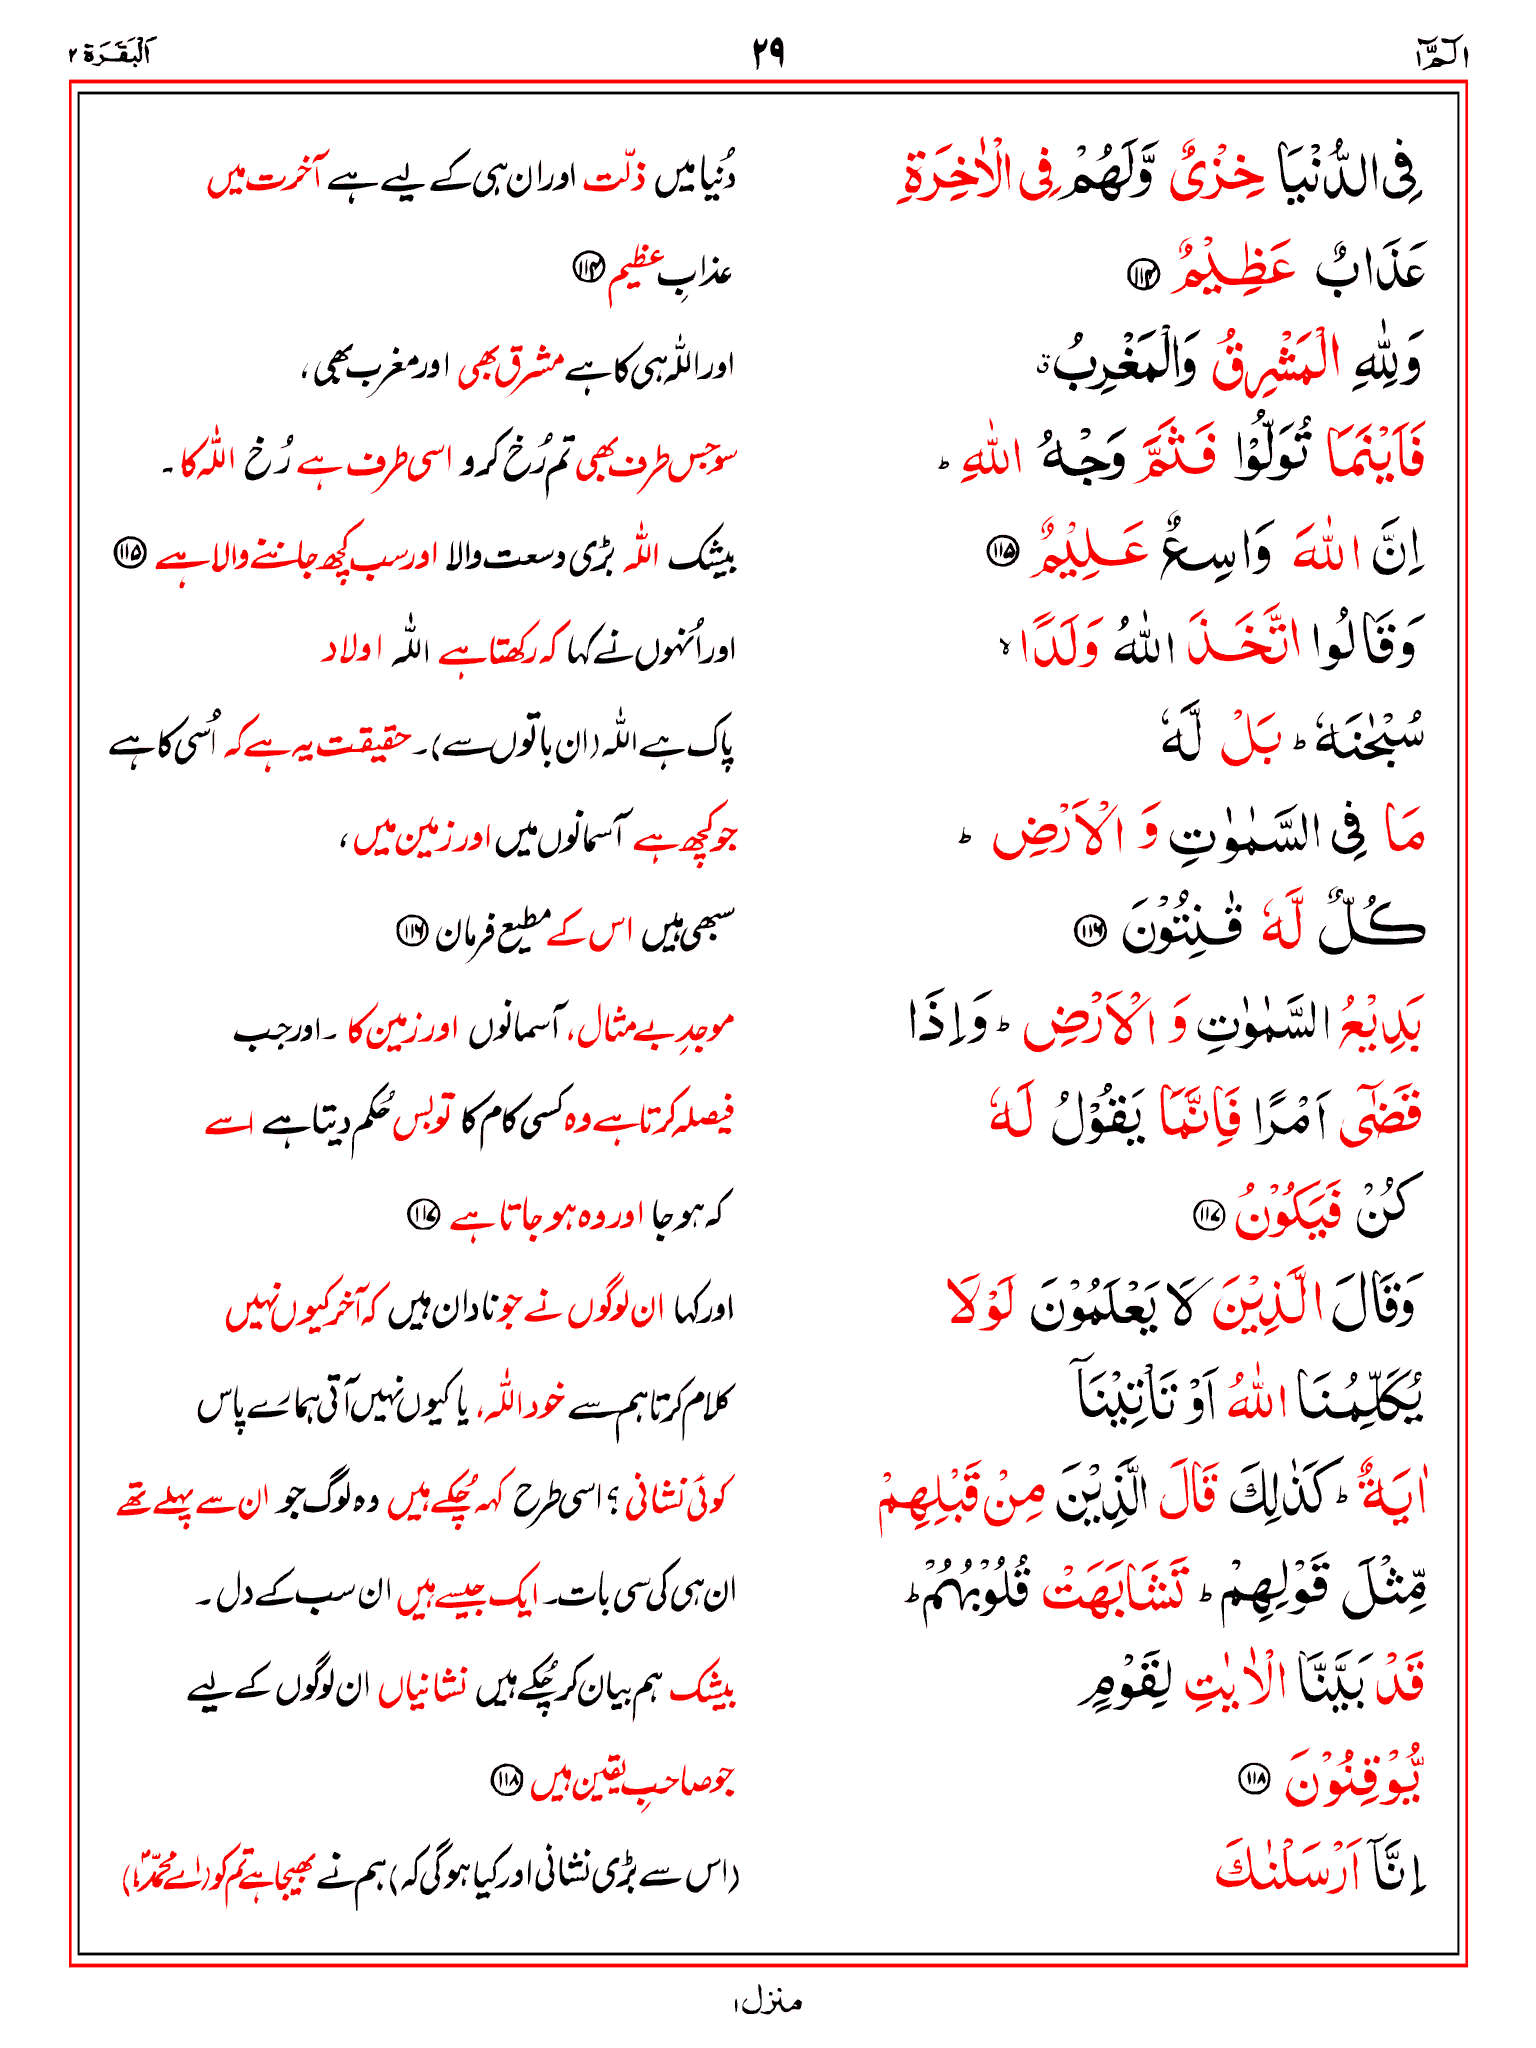 الٓمّٓ ۱ ۲۹ اَلْبَقَرَة ۲
فِى الدُّنْيَا خِزْىٌ وَّلَهُمْ فِى الْاٰخِرَةِ دُنیا میں ذلّت اور ان ہی کے لیے ہے آخرت میں
عَذَابٌ عَظِيْمٌ ⁠۝۱۱۴ عذابِ عظیم ۝۱۱۴
وَلِلّٰهِ الْمَشْرِقُ وَالْمَغْرِبُ ۛق اور اللہ ہی کا ہے مشرق بھی اور مغرب بھی،
فَاَيْنَمَا تُوَلُّوْا فَثَمَّ وَجْهُ اللّٰهِ ؕ سو جس طرف بھی تم رُخ کرو اسی طرف ہے رُخ اللہ کا۔
اِنَّ اللّٰهَ وَاسِعٌ عَلِيْمٌ ۝۱۱۵ بیشک اللہ بڑی وسعت والا اور سب کچھ جاننے والا ہے ۝۱۱۵
وَقَالُوا اتَّخَذَ اللّٰهُ وَلَدًا ۙ اور اُنہوں نے کہا کہ رکھتا ہے اللہ اولاد
سُبْحٰنَهٗ ؕ بَلْ لَّهٗ پاک ہے اللہ (ان باتوں سے)۔ حقیقت یہ ہے کہ اُسی کا ہے
مَا فِى السَّمٰوٰتِ وَ الْاَرْضِ ؕ جو کچھ ہے آسمانوں میں اور زمین میں،
كُلٌّ لَّهٗ قٰنِتُوْنَ ۝۱۱۶ سبھی ہیں اس کے مطیع فرمان ۝۱۱۶
بَدِيْعُ السَّمٰوٰتِ وَ الْاَرْضِ ؕ وَاِذَا موجدِ بے مثال، آسمانوں اور زمین کا ۔ اور جب
قَضٰٓى اَمْرًا فَاِنَّمَا يَقُوْلُ لَهٗ فیصلہ کرتا ہے وہ کسی کام کا تو بس حُکم دیتا ہے اسے
كُنْ فَيَكُوْنُ ۝۱۱۷ کہ ہو جا اور وہ ہو جاتا ہے ۝۱۱۷
وَقَالَ الَّذِيْنَ لَا يَعْلَمُوْنَ لَوْلَا اور کہا ان لوگوں نے جو نادان ہیں کہ آخر کیوں نہیں
يُكَلِّمُنَا اللّٰهُ اَوْ تَاْتِيْنَآ کلام کرتا ہم سے خود اللہ، یا کیوں نہیں آتی ہمارے پاس
اٰيَةٌ ؕ كَذٰلِكَ قَالَ الَّذِيْنَ مِنْ قَبْلِهِمْ کوئی نشانی ؟ اسی طرح کہہ چُکے ہیں وہ لوگ جو ان سے پہلے تھے
مِّثْلَ قَوْلِهِمْ ؕ تَشَابَهَتْ قُلُوْبُهُمْ ؕ ان ہی کی سی بات۔ ایک جیسے ہیں ان سب کے دل۔
قَدْ بَيَّنَّا الْاٰيٰتِ لِقَوْمٍ بیشک ہم بیان کر چُکے ہیں نشانیاں ان لوگوں کے لیے
يُّوْقِنُوْنَ ۝۱۱۸ جو صاحبِ یقین ہیں ۝۱۱۸
اِنَّآ اَرْسَلْنٰكَ (اس سے بڑی نشانی اور کیا ہو گی کہ) ہم نے بھیجا ہے تم کو (اے محمّدؐ!)
منزل ۱